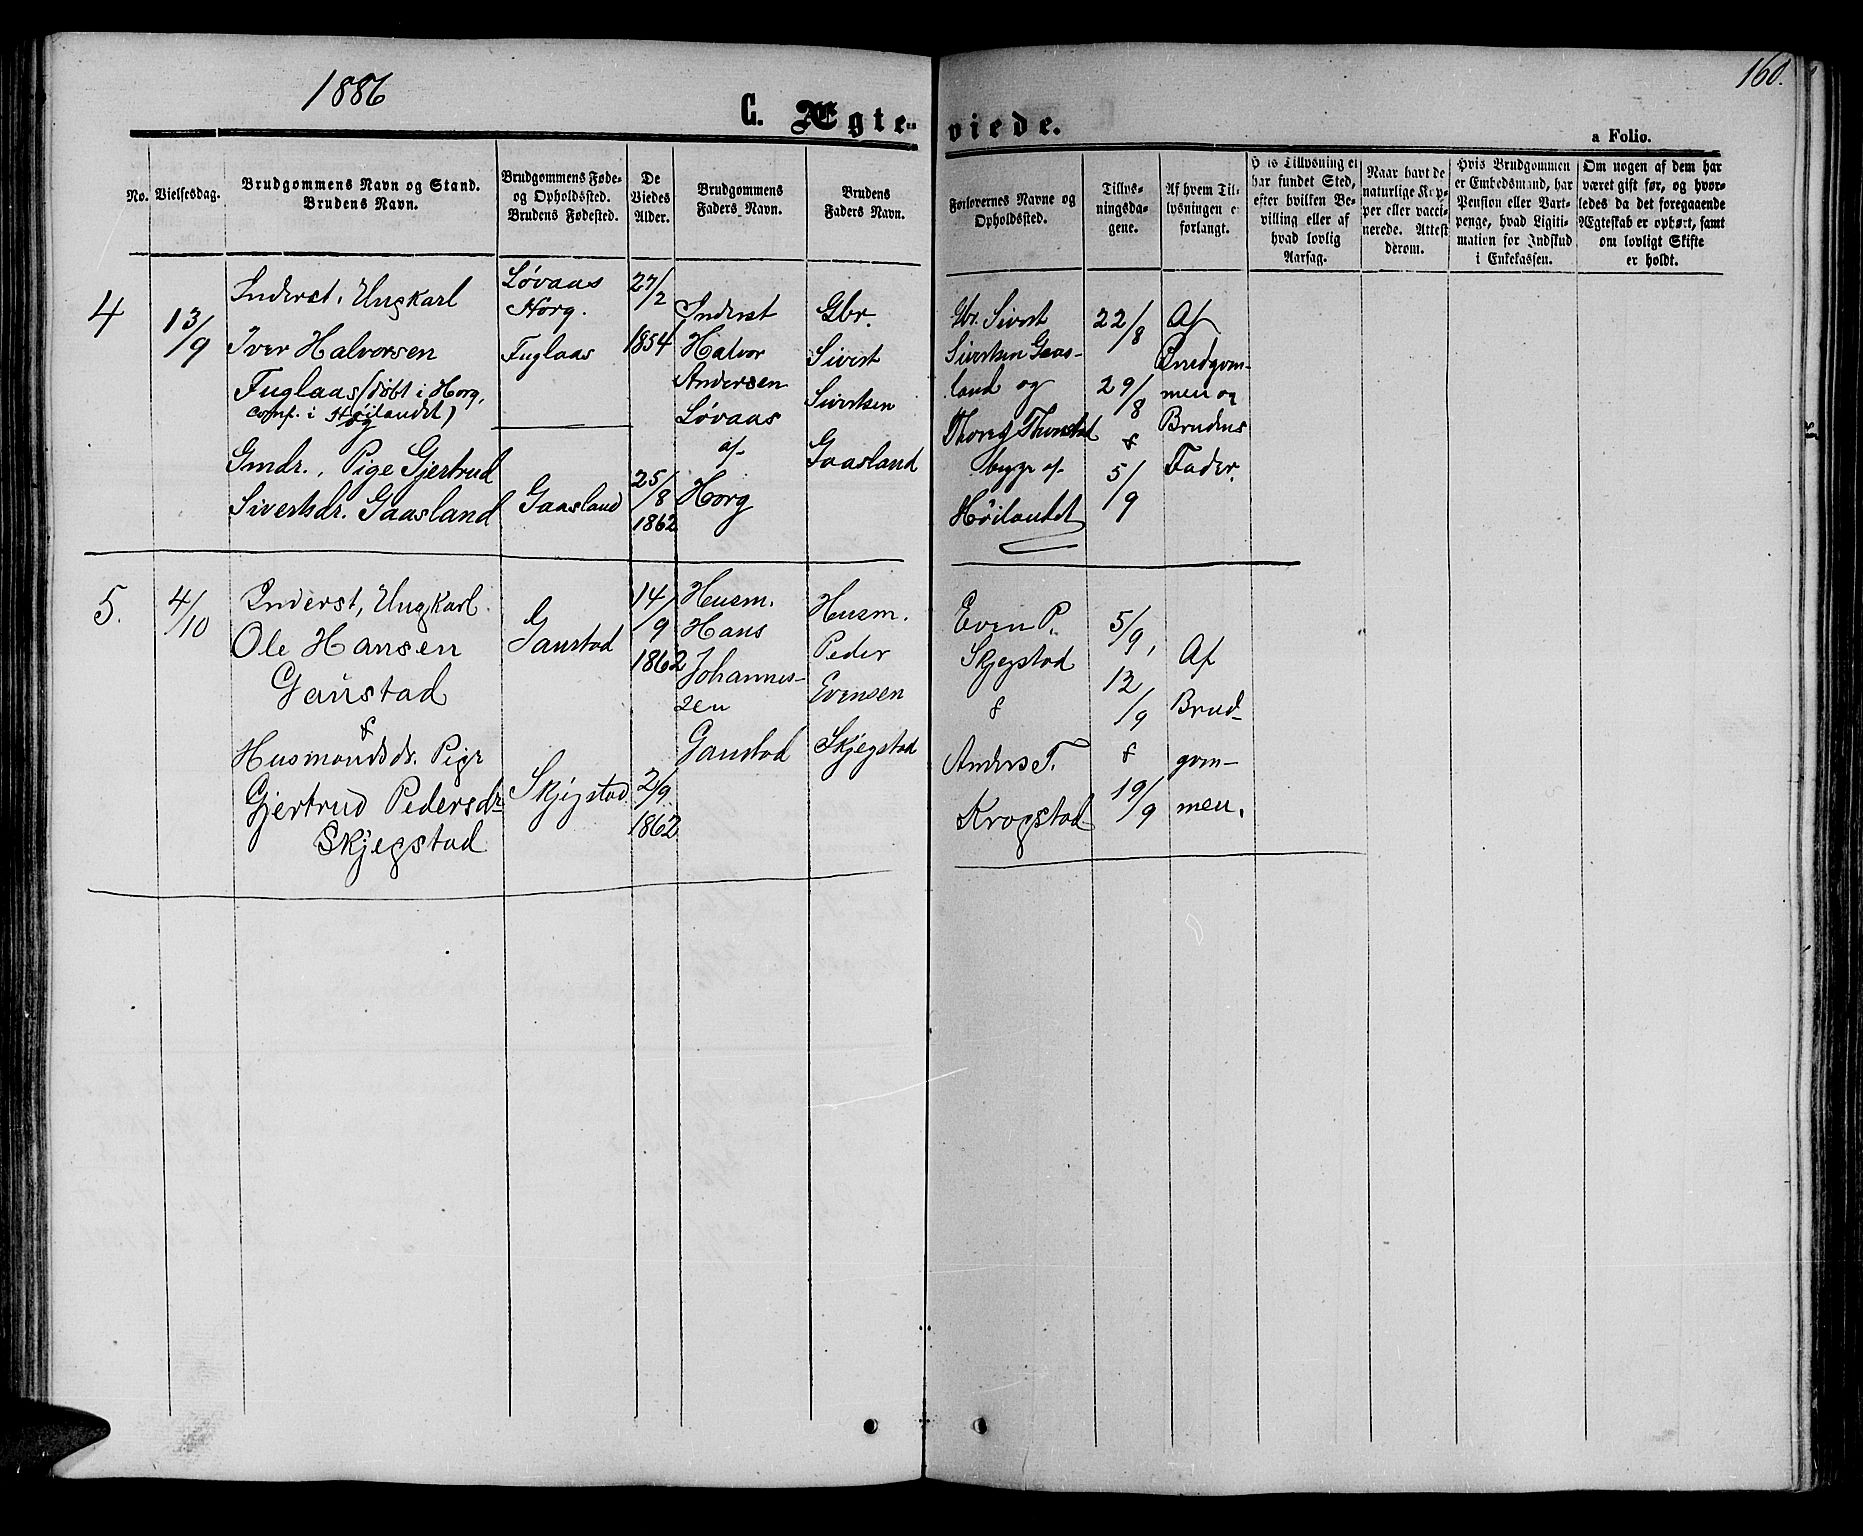 1886
160.
C. Ægte-
viede.
a Folio.
No.
Vielsesdag.
Brudgommens Navn og Stand.
Brudens Navn.
Brudgommens Føde-
og Opholdssted.
Brudens Fødested.
De
Viedes
Alder.
Brudgommens
Faders Navn.
Brudens
Faders Navn.
Forlovernes Navne og
Opholdssted.
Tillys-
ningsda-
gene.
Af hvem Til-
lysningen er
forlangt.
Hvis Tillysning ei
har fundet Sted,
efter hvilken Be-
villing eller af
hvad lovlig
Aarsag.
Naar havt de
naturlige Kop-
per eller vacci-
nerede. Attest
derom.
Hvis Brudgommen
er Embedsmand, har
Pension eller Vart-
penge, hvad Ligiti-
mation for Indskud
i Enkekassen.
Om nogen af dem har
været gift før, og hvor-
ledes da det foregaaende
Ægteskab er ophørt, samt
om lovligt Skifte
er holdt.
4
13/9
Inderst, Ungkarl
Iver Halvorsen
Fuglaas (døbt i Horg,
conf. i Høilandet)
og
Gmdr., Pige Gjertrud
Sivertsdr. Gaasland
Løvaas
Horg.
Fuglaas
Gaasland
27/2
1854
25/8
1862
Inderst
Halvor
Andersen
Løvaas
af
Horg
Gbr.
Sivert
Sivertsen
Gaasland
Gbr. Sivert
Sivertsen Gaas-
land og
bygge af
Høilandet
22/8
29/8
&
5/9
Af
Brudgom-
men og
Brudens
Fader.
5.
4/10
Inderst, Ungkarl.
Ole Hansen
Gaustad
&
Husmandsdr. Pige
Gjertrud Pedersdr
Skjegstad
Gaustad
Skjegstad
14/9
1862
2/9.
1862
Husm.
Hans
Johannes-
sen
Gaustad
Husm.
Peder
Evensen
Skjegstad
Even P.
Skjegstad
&
Anders T.
Krogstad
5/9,
12/9
&
19/9
Af
Brud-
gom-
men.